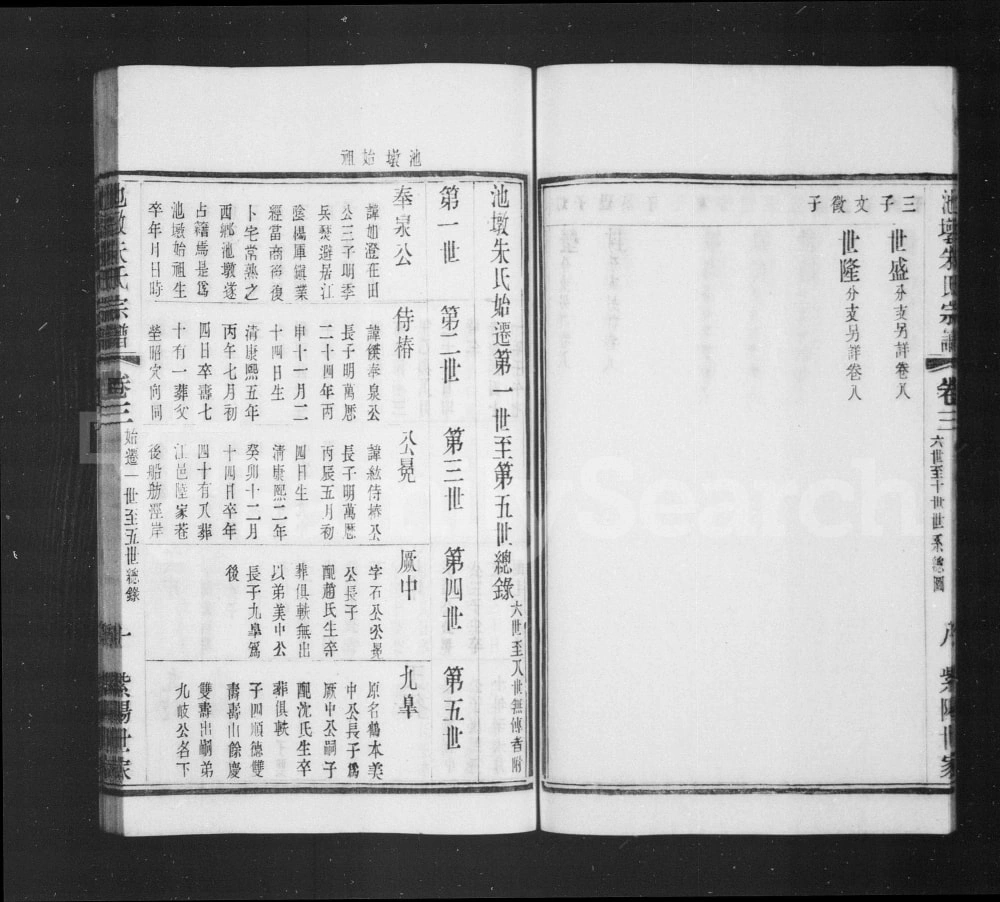 池墩朱氏宗譜
卷三
六世至十世世系總圖
八
紫陽世家
三子
世盛分支另詳卷八
文徵子
世隆分支另詳卷八
池墩始祖
池墩朱氏始遷第一世至第五世總錄六世至八世無傳者附
第一世
第二世
第三世
第四世
第五世
奉泉公
諱如澄在田
公三子明季
兵燹避居江
陰楊厙鎮業
經當商後復
卜宅常熟之
西鄉池墩遂
占籍焉是為
池墩始祖生
卒年月日時
侍椿
諱鏷奉泉公
長子明萬厯
二十四年丙
申十一月二
十四日生
清康熙五年
丙午七月初
四日卒壽七
十有一葬父
塋昭穴向同
公冕
諱紘侍椿公
長子明萬厯
丙辰五月初
四日生
清康熙二年
癸卯十二月
十四日卒年
四十有八葬
江邑陸家巷
後船舫涇岸
厥中
字石公公冕
公長子
配趙氏生卒
葬俱軼無出
以弟美中公
長子九臯為
後
九臯
原名鶴本美
中公長子為
厥中公嗣子
配沈氏生卒
葬俱軼
子四順德雙
壽壽山餘慶
雙壽出嗣弟
九岐公名下
池墩朱氏宗譜
卷三
始遷一世至五世總錄
十
紫陽世家